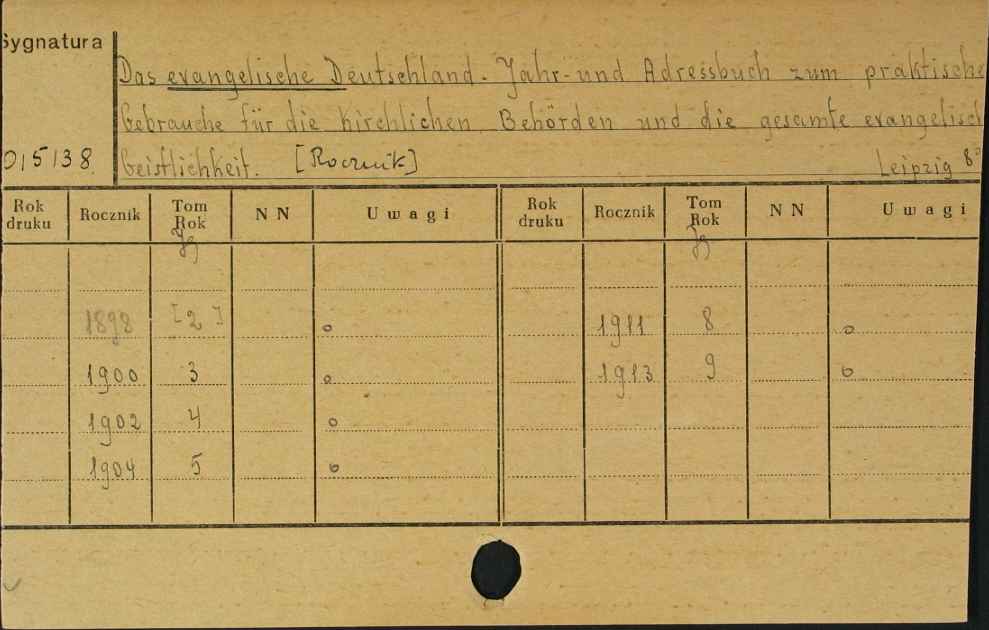 Sygnatura
Das evangelische Deutschland. Jahr- und Adressbuch zum praktische
Gebrauche für die kirchlichen Behörden und die gesamte evangelisch
015138 Geistlichkeit. [Rocznik] Leipzig 8°
Rok druku Rocznik Tom Rok NN Uwagi Rok druku Rocznik Tom Rok NN Uwagi
Jg Jg
1898 [2] o 1911 8 o
1900 3 o 1913 9 o
1902 4 o
1904 5 o